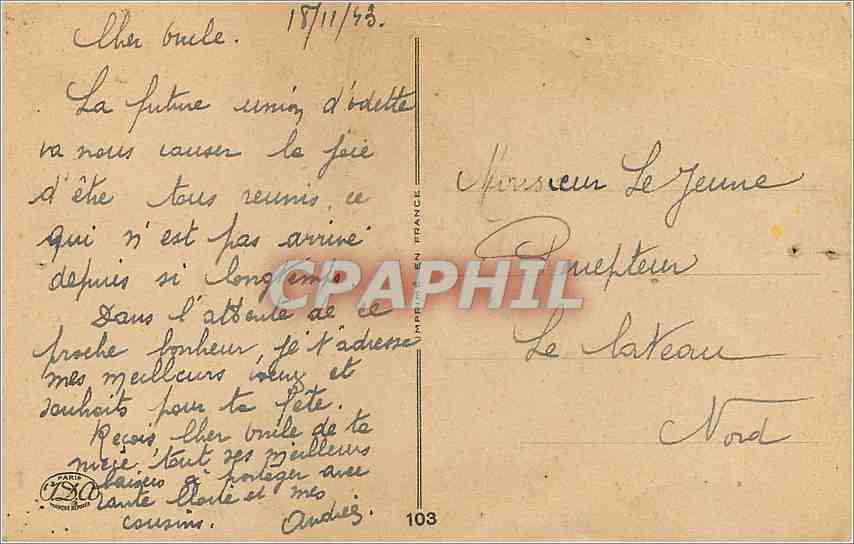 18/11/43.
Cher Oncle.
La future union d'odette
va nous causer la joie
d'être tous reunis, ce
qui n'est pas arrivé
depuis si longtemps
Dans l'attente de ce
proche bonheur, je t'adresse
mes meilleurs voeux et
souhaits pour ta fête.
Reçois Cher Oncle de ta
nièce, tout ses meilleurs
baisers à partager avec
tante et mes
cousins. Andrée.
Monsieur Le Jeune
Percepteur
Le Cateau
Nord
IMPRIMÉ EN FRANCE
CPAPHIL
PARIS
103